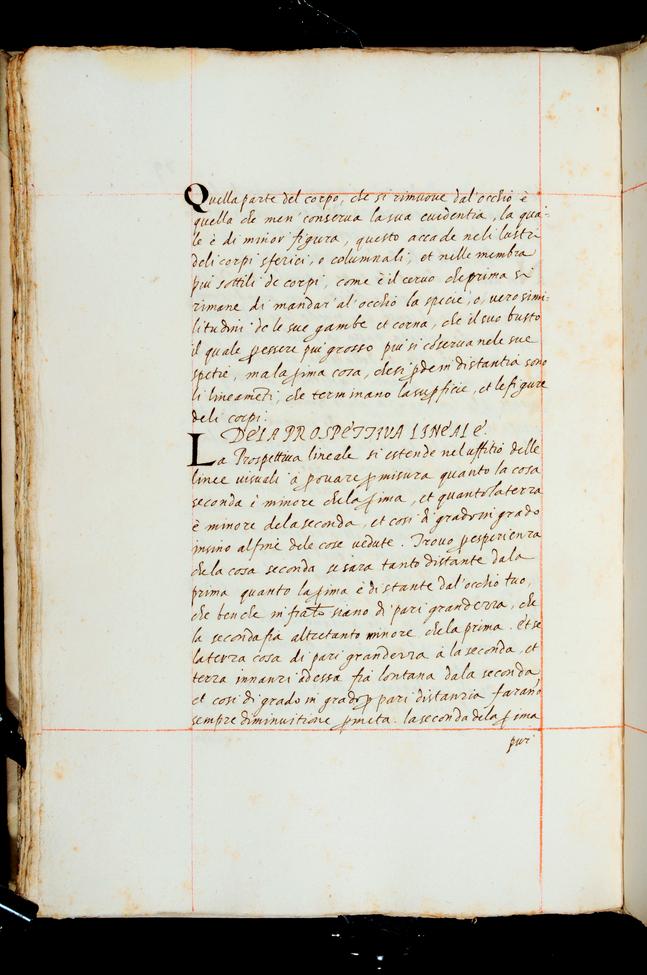 Quella parte del corpo, che si rimuove dal'occhio è
quella che men' conserva la sua euidentia, la qua=
le è di minor figura, questo accade neli lustri
deli corpi sferici, o columnali, et nelle membra
più sottili de corpi, come è il ceruo che prima si
rimane di mandar' al'occhio la specie, o, vero simi=
litudini de le sue gambe et corna, che il suo busto
il quale p essere piu grosso piu si cõserua nele sue
spetie, ma la pima cosa, che si pde in distantia sono
li lineamẽti, che terminano la supficie, et le figure
deli corpi.
DELA PROSPETTIVA LINEALE.
La Prospettiua lineale si estende nel uffitiò delle
linee uisuali à prouare p misura quanto la cosa
seconda è minore che la pima, et quanto la terza
è minore dela seconda, et cosi di grado in grado
insino al fine dele cose uedute. Trouo p esperienza
che la cosa seconda se sara tanto distante dala
prima quanto la pima è distante dal'occhio tuo,
che benche in fra loro siano di pari grandezza, che
la seconda fia altretanto minore che la prima. Et se
la terza cosa di pari grandezza à la seconda, et
terza innanzi ad essa fia lontana dala seconda
et cosi di grado in grado p pari distanzia farano
sempre diminuitione p metà. la seconda dela pima
pur